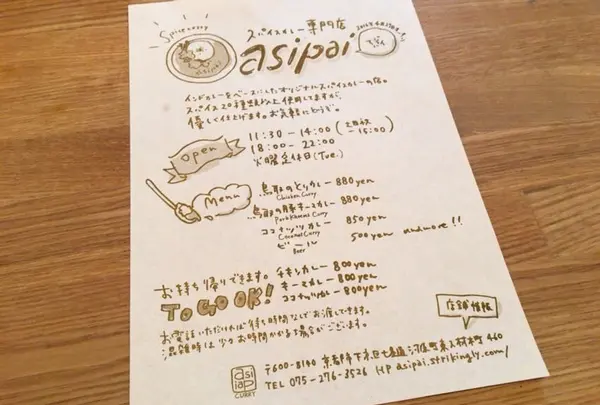 Spice curry
スパイスカレー専門店
asipai
インドカレーをベースにしたオリジナルスパイスカレーの店。
スパイス20種類以上使用してますが、
優しく仕上げます。お気軽にどうぞ。
open
11:30-14:00 (土日祝-15:00)
18:00-22:00
火曜定休日(Tue.)
Menu
鳥取のとりカレー 880yen
Chicken Curry
鳥取の豚キーマカレー 880yen
Pork Keema Curry
ココナッツカレー 850yen
Coconut Curry
ビール 500yen and more!!
Beer
お持ち帰りできます。
TO GO OK!
チキンカレー 800yen
キーマカレー 800yen
ココナッツカレー 800yen
お電話いただければ待ち時間なしでお渡しできます。
混雑時は少々お時間かかる場合がございます。
店舗情報
asipai CURRY
〒600-8140 京都市下京区七条通河原町東入材木町460
TEL 075-276-3526 HP asipai.strikingly.com/